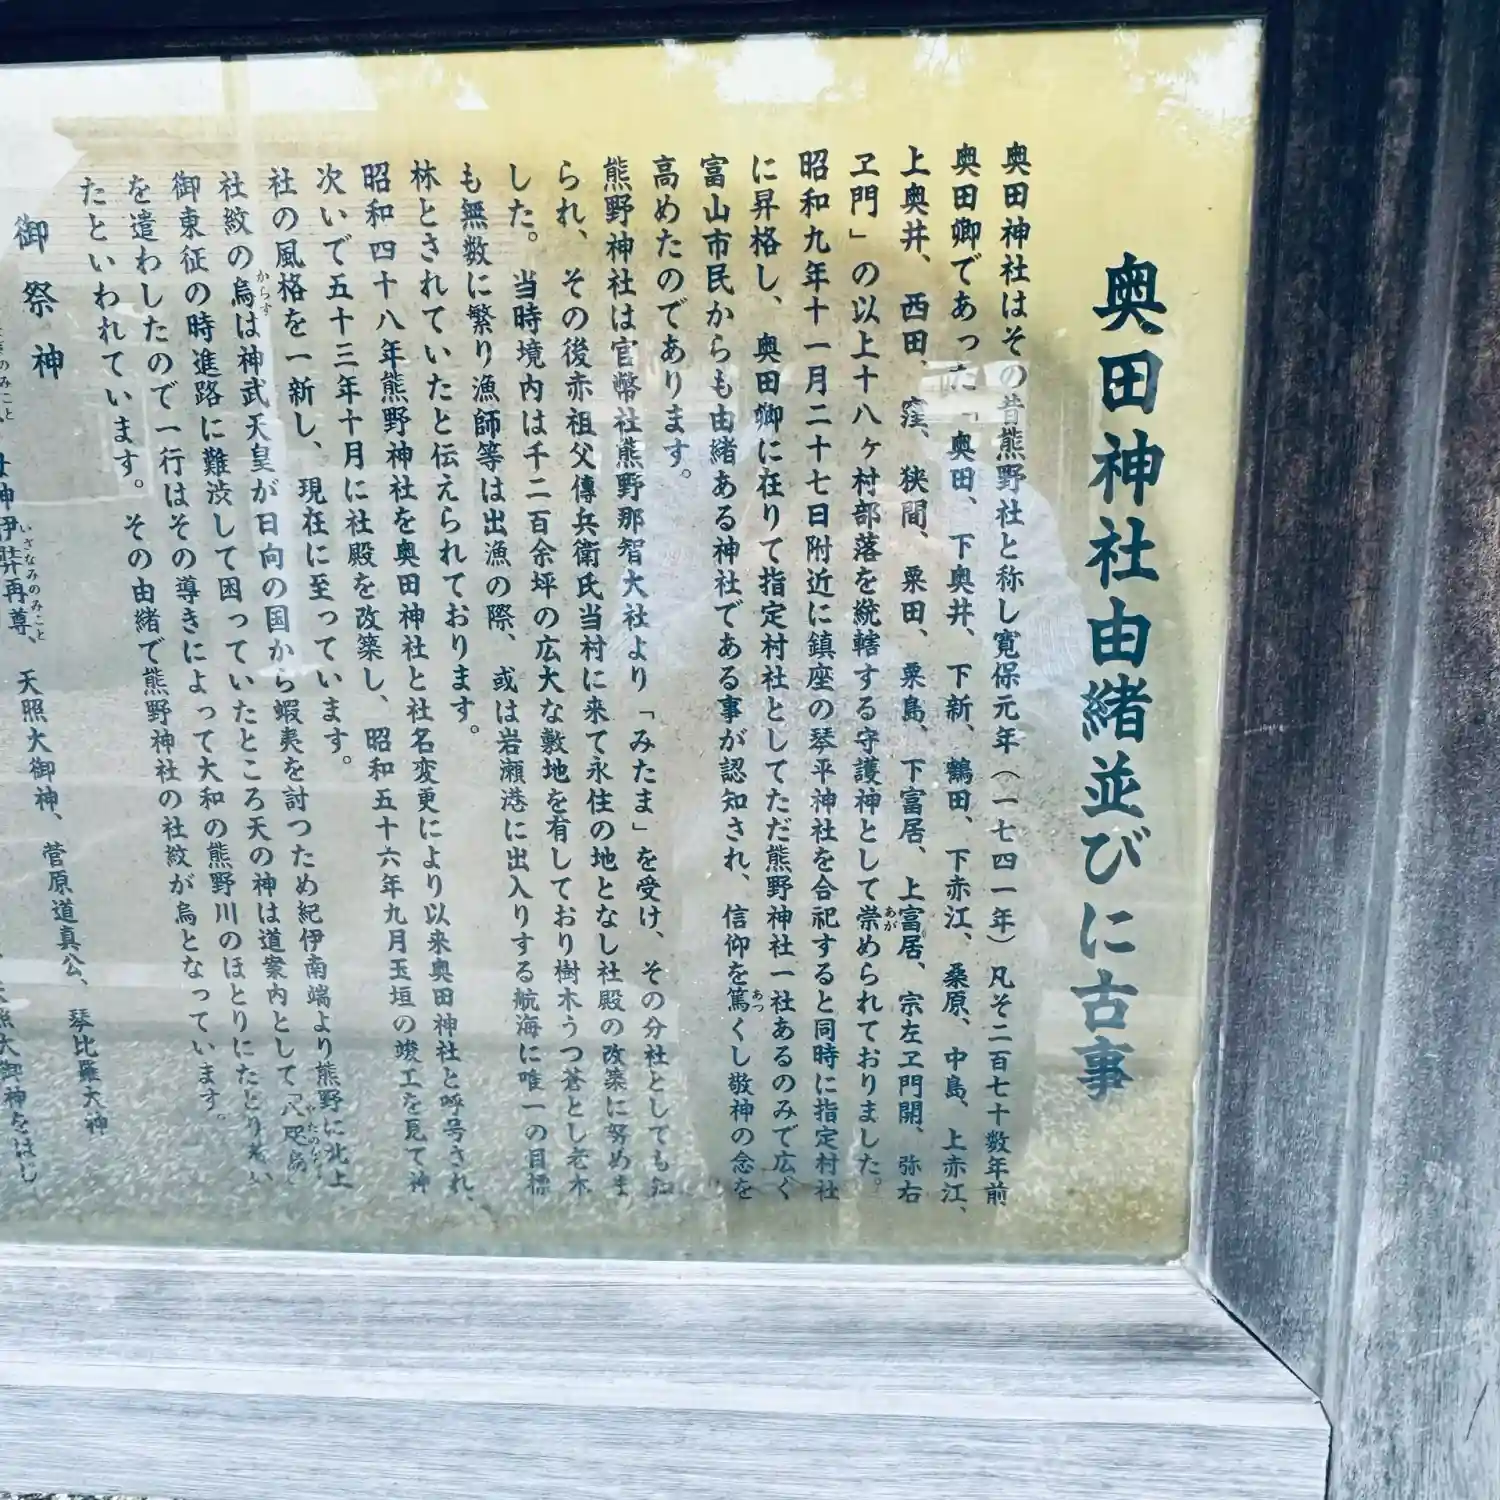 奥田神社由緒並びに古事
奥田神社はその昔熊野社と称し寛保元年（一七四一年）凡そ二百七十数年前
奥田郷であった「奥田、下奥井、下新、鶴田、下赤江、桑原、中島、上赤江、
上奥井、西田、窪、狭間、粟田、粟島、下富居、上富居、宗左ヱ門開、弥右
ヱ門」の以上十八ヶ村部落を統轄する守護神として崇められておりました。
昭和九年十一月二十七日附近に鎮座の琴平神社を合祀すると同時に指定村社
に昇格し、奥田郷に在りて指定村社としてただ熊野神社一社あるのみで広く
富山市民からも由緒ある神社である事が認知され、信仰を篤くし敬神の念を
高めたのであります。
熊野神社は官幣社熊野那智大社より「みたま」を受け、その分社としても知
られ、その後赤祖父傳兵衛氏当村に来て永住の地となし社殿の改築に努めま
した。当時境内は千二百余坪の広大な敷地を有しており樹木うつ蒼とし老木
も無数に繁り漁師等は出漁の際、或は岩瀬港に出入りする航海に唯一の目標
林とされていたと伝えられております。
昭和四十八年熊野神社を奥田神社と社名変更により以来奥田神社と呼号され、
次いで五十三年十月に社殿を改築し、昭和五十六年九月玉垣の竣工を見て神
社の風格を一新し、現在に至っています。
社紋の烏は神武天皇が日向の国から蝦夷を討つため紀伊南端より熊野に北上
御東征の時進路に難渋して困っていたところ天の神は道案内として「八咫烏」
を遣わしたので一行はその導きによって大和の熊野川のほとりにたどり着い
たといわれています。その由緒で熊野神社の社紋が烏となっています。
御祭神
神伊弉再尊、天照大御神、菅原道真公、琴比羅大神
大御神をはじ